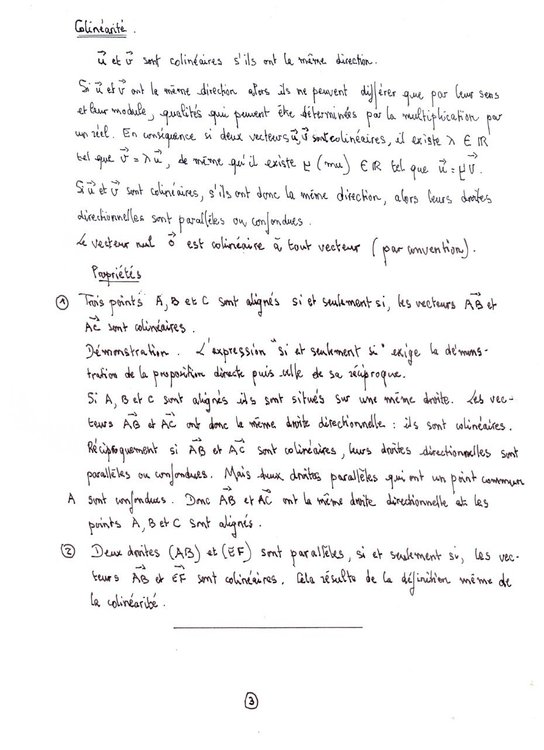 Colinéarité.
u⃗ et v⃗ sont colinéaires s'ils ont la même direction.
Si u⃗ et v⃗ ont la même direction alors ils ne peuvent différer que par leur sens
et leur module, qualités qui peuvent être déterminées par la multiplication par
un réel. En conséquence si deux vecteurs u⃗, v⃗ sont colinéaires, il existe λ ∈ ℝ
tel que v⃗ = λu⃗, de même qu'il existe μ (mu) ∈ ℝ tel que u⃗ = μv⃗.
Si u⃗ et v⃗ sont colinéaires, s'ils ont donc la même direction, alors leurs droites
directionnelles sont parallèles ou confondues.
Le vecteur nul o⃗ est colinéaire à tout vecteur (par convention).
Propriétés
① Trois points A, B et C sont alignés si et seulement si, les vecteurs AB⃗ et
AC⃗ sont colinéaires.
Démonstration. L'expression "si et seulement si" exige la démons-
tration de la proposition directe puis celle de sa réciproque.
Si A, B et C sont alignés ils sont situés sur une même droite. Les vec-
teurs AB⃗ et AC⃗ ont donc la même droite directionnelle : ils sont colinéaires.
Réciproquement si AB⃗ et AC⃗ sont colinéaires, leurs droites directionnelles sont
parallèles ou confondues. Mais deux droites parallèles qui ont un point commun
A sont confondues. Donc AB⃗ et AC⃗ ont la même droite directionnelle et les
points A, B et C sont alignés.
② Deux droites (AB) et (EF) sont parallèles, si et seulement si, les vec-
teurs AB⃗ et EF⃗ sont colinéaires. Cela résulte de la définition même de
la colinéarité.
③